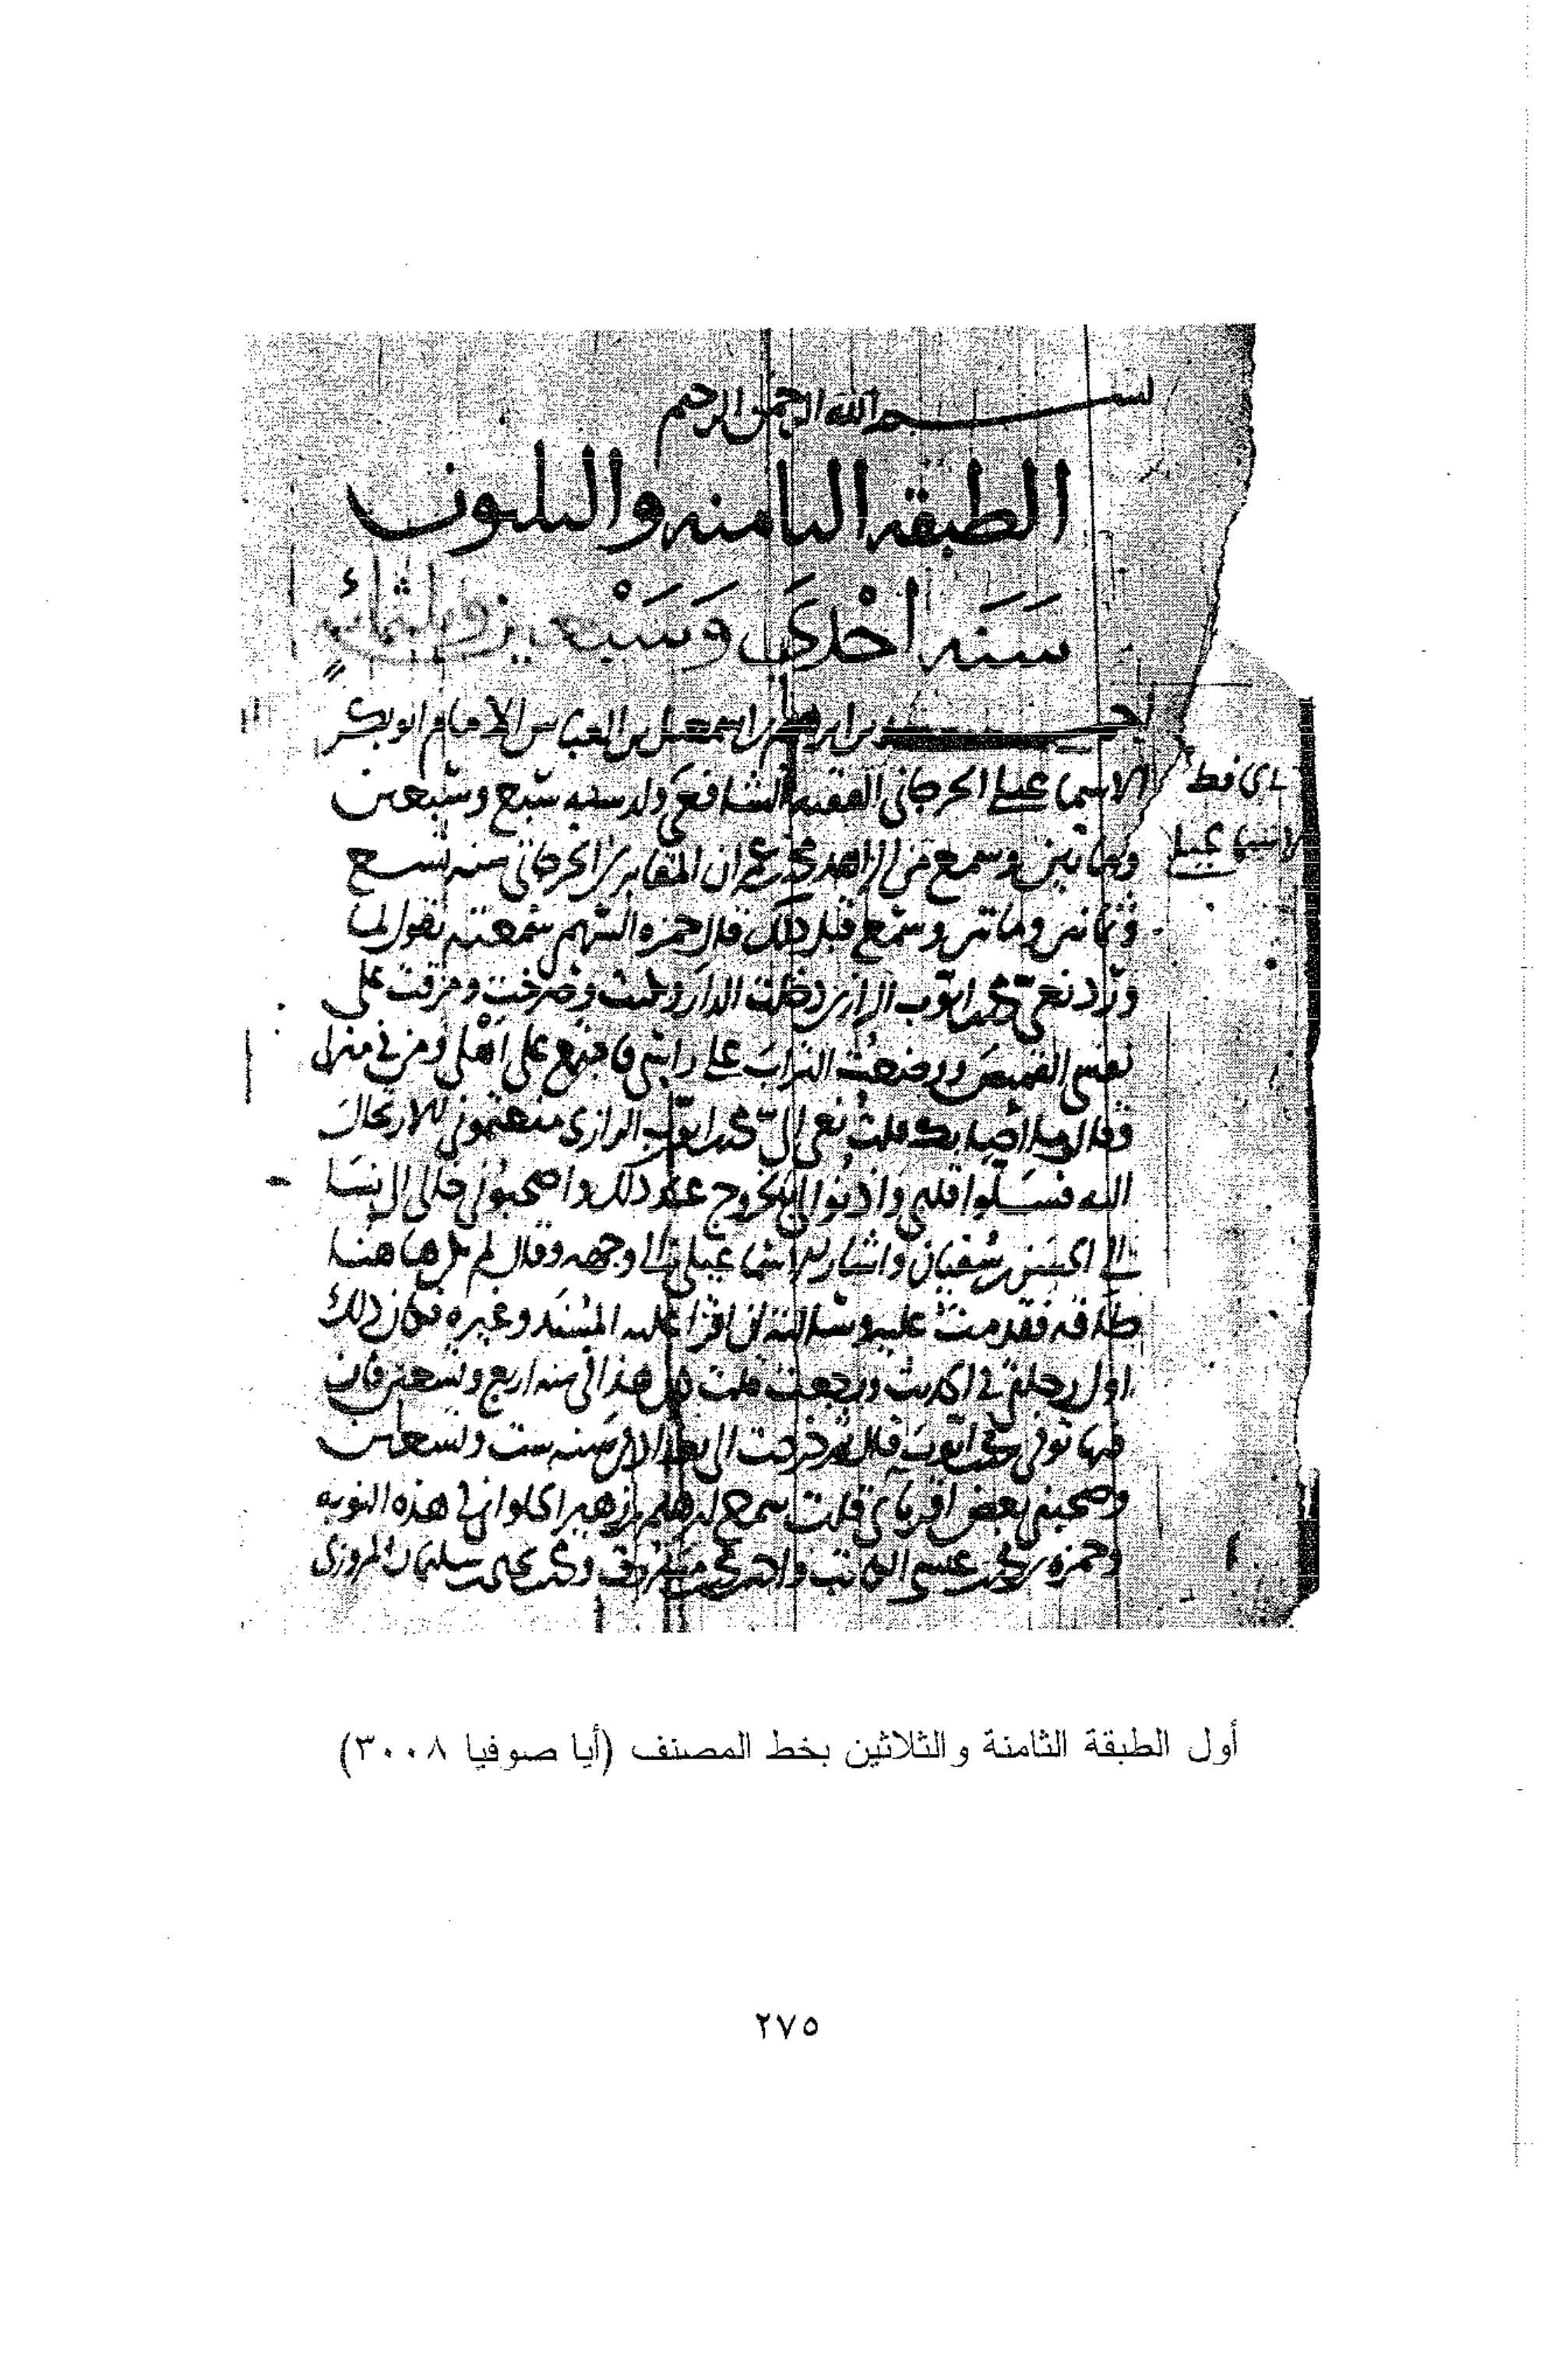 بسم الله الرحمن الرحيم
الطبقه الثامنه والثلثون
سَنَه اَحْدَى وَسَبْعين وثلثمائه
احمد بن ابرهيم بن اسمعيل بن العباس الامام ابو بكر
الاسماعيلي الجرجاني الفقيه الشافعي ولد سنه سبع وسبعين
الحافظ
الاسماعيلي
ومائتين وسمع من الزاهد محمد بن عمران المقابري الجرجاني سنه تسع
وثمانين ومائتين وسمع قبل ذلك قال حمزه السهمي سمعته يقول لما
ورد نعي محمد بن ايوب الرازي دخلت الدار وبكيت وصرخت ومزقت على
نفسي القميص ووضعت التراب على راسي فاجتمع علي اهلي ومن في منزلي
وقالوا ما اصابك قلت نعي الي محمد بن ايوب الرازي منعتموني الارتحال
اليه فسلوا قلبي واذنوا لي بالخروج عند ذلك واصحبوني خالي الى نسا
الى الحسن بن سفيان واشار الاسماعيلي الى وجهه وقال لم يكن هاهنا
طاقه فقدمت عليه وسالته ان اقرا عليه المسند وغيره فكان ذلك
اول رحلتي في الحديث ورجعت قلت كان هذا في سنه اربع وتسعين فان
فيها توفي محمد بن ايوب قال ثم خرجت الى بغداد في سنه ست وتسعين
وصحبني بعض اقربائي قلت سمع ابرهيم بن زهير الحلواني في هذه النوبه
وحمزه بن محمد بن عيسى الكاتب واحمد بن محمد بن مسروق ومحمد بن يحيى بن سليمان المروزي
أول الطبقة الثامنة والثلاثين بخط المصنف (أيا صوفيا ٣٠٠٨)
٢٧٥